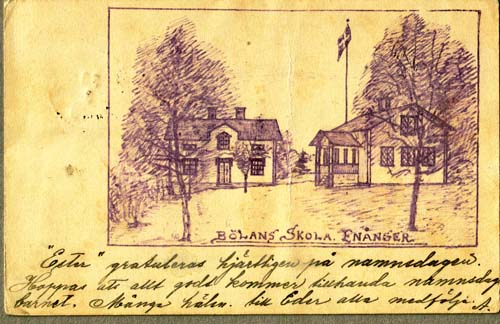 BÖLANS SKOLA. ENÅNGER
"Ester" gratuleras hjärtligen på namnsdagen.
Hoppas att allt godt kommer tillhanda namnsdags
barnet. Många häln. till Eder alla medfölja. A.